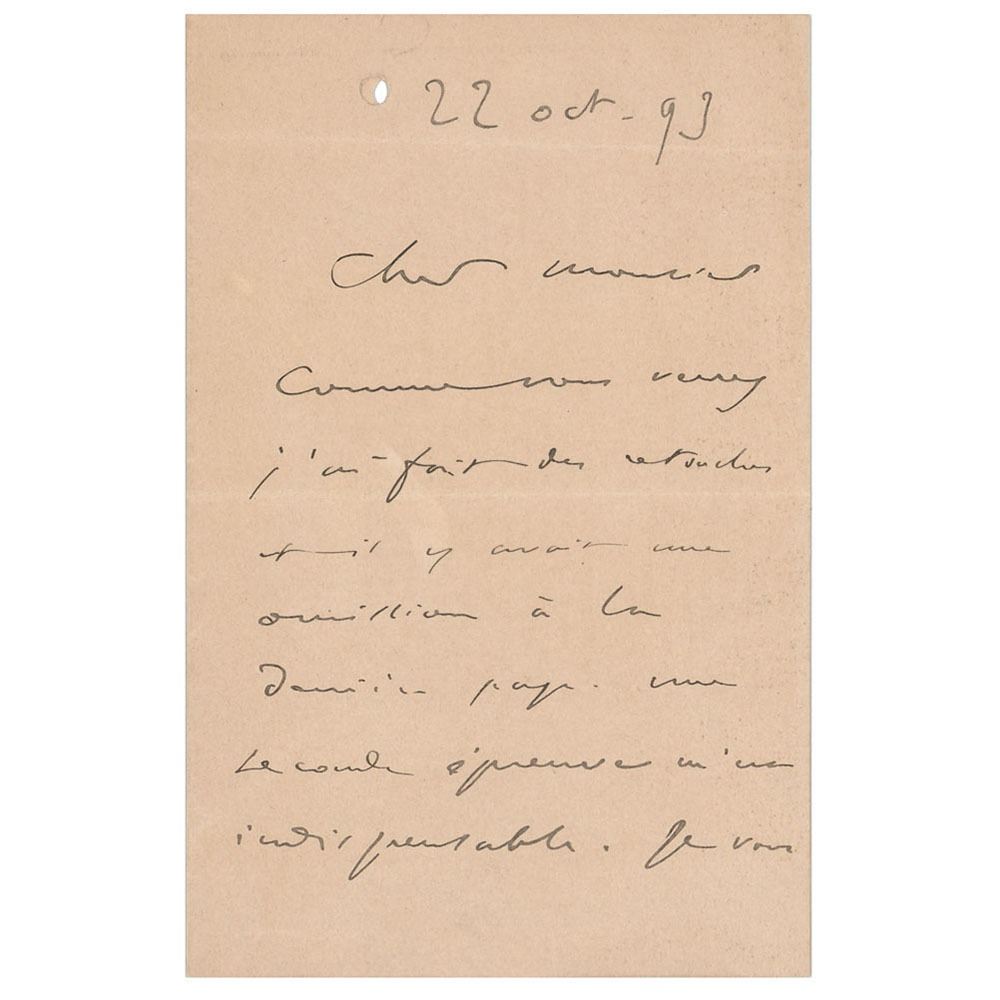 22 oct. 93
Cher monsieur
Comme vous verrez
j'ai fait des retouches
et il y avait une
omission à la
dernière page. une
seconde épreuve m'est
indispensable. Je vous